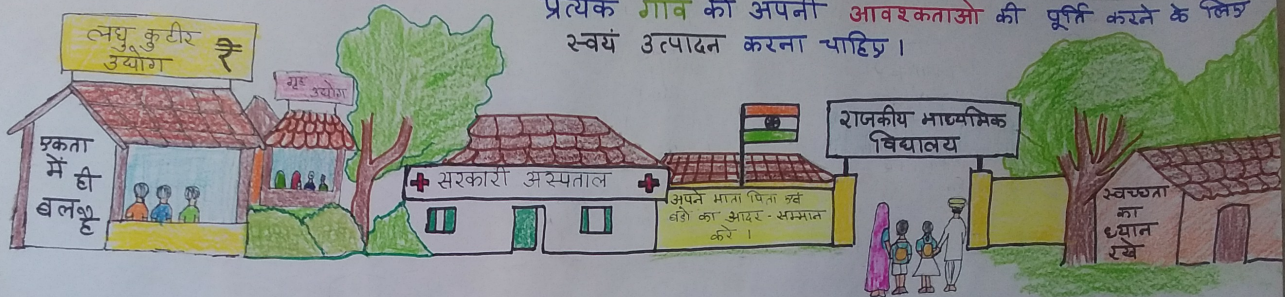 प्रत्येक गाँव को अपनी आवश्कताओ की पूर्ति करने के लिए
स्वयं उत्पादन करना चाहिए।
लघु कुटीर
उद्योग ₹
गृह उद्योग
एकता
में ही
बल है
सरकारी अस्पताल
अपने माता पिता एवं
बड़ो का आदर-सम्मान
करे।
राजकीय माध्यमिक
विद्यालय
स्वच्छता
का
ध्यान
रखे